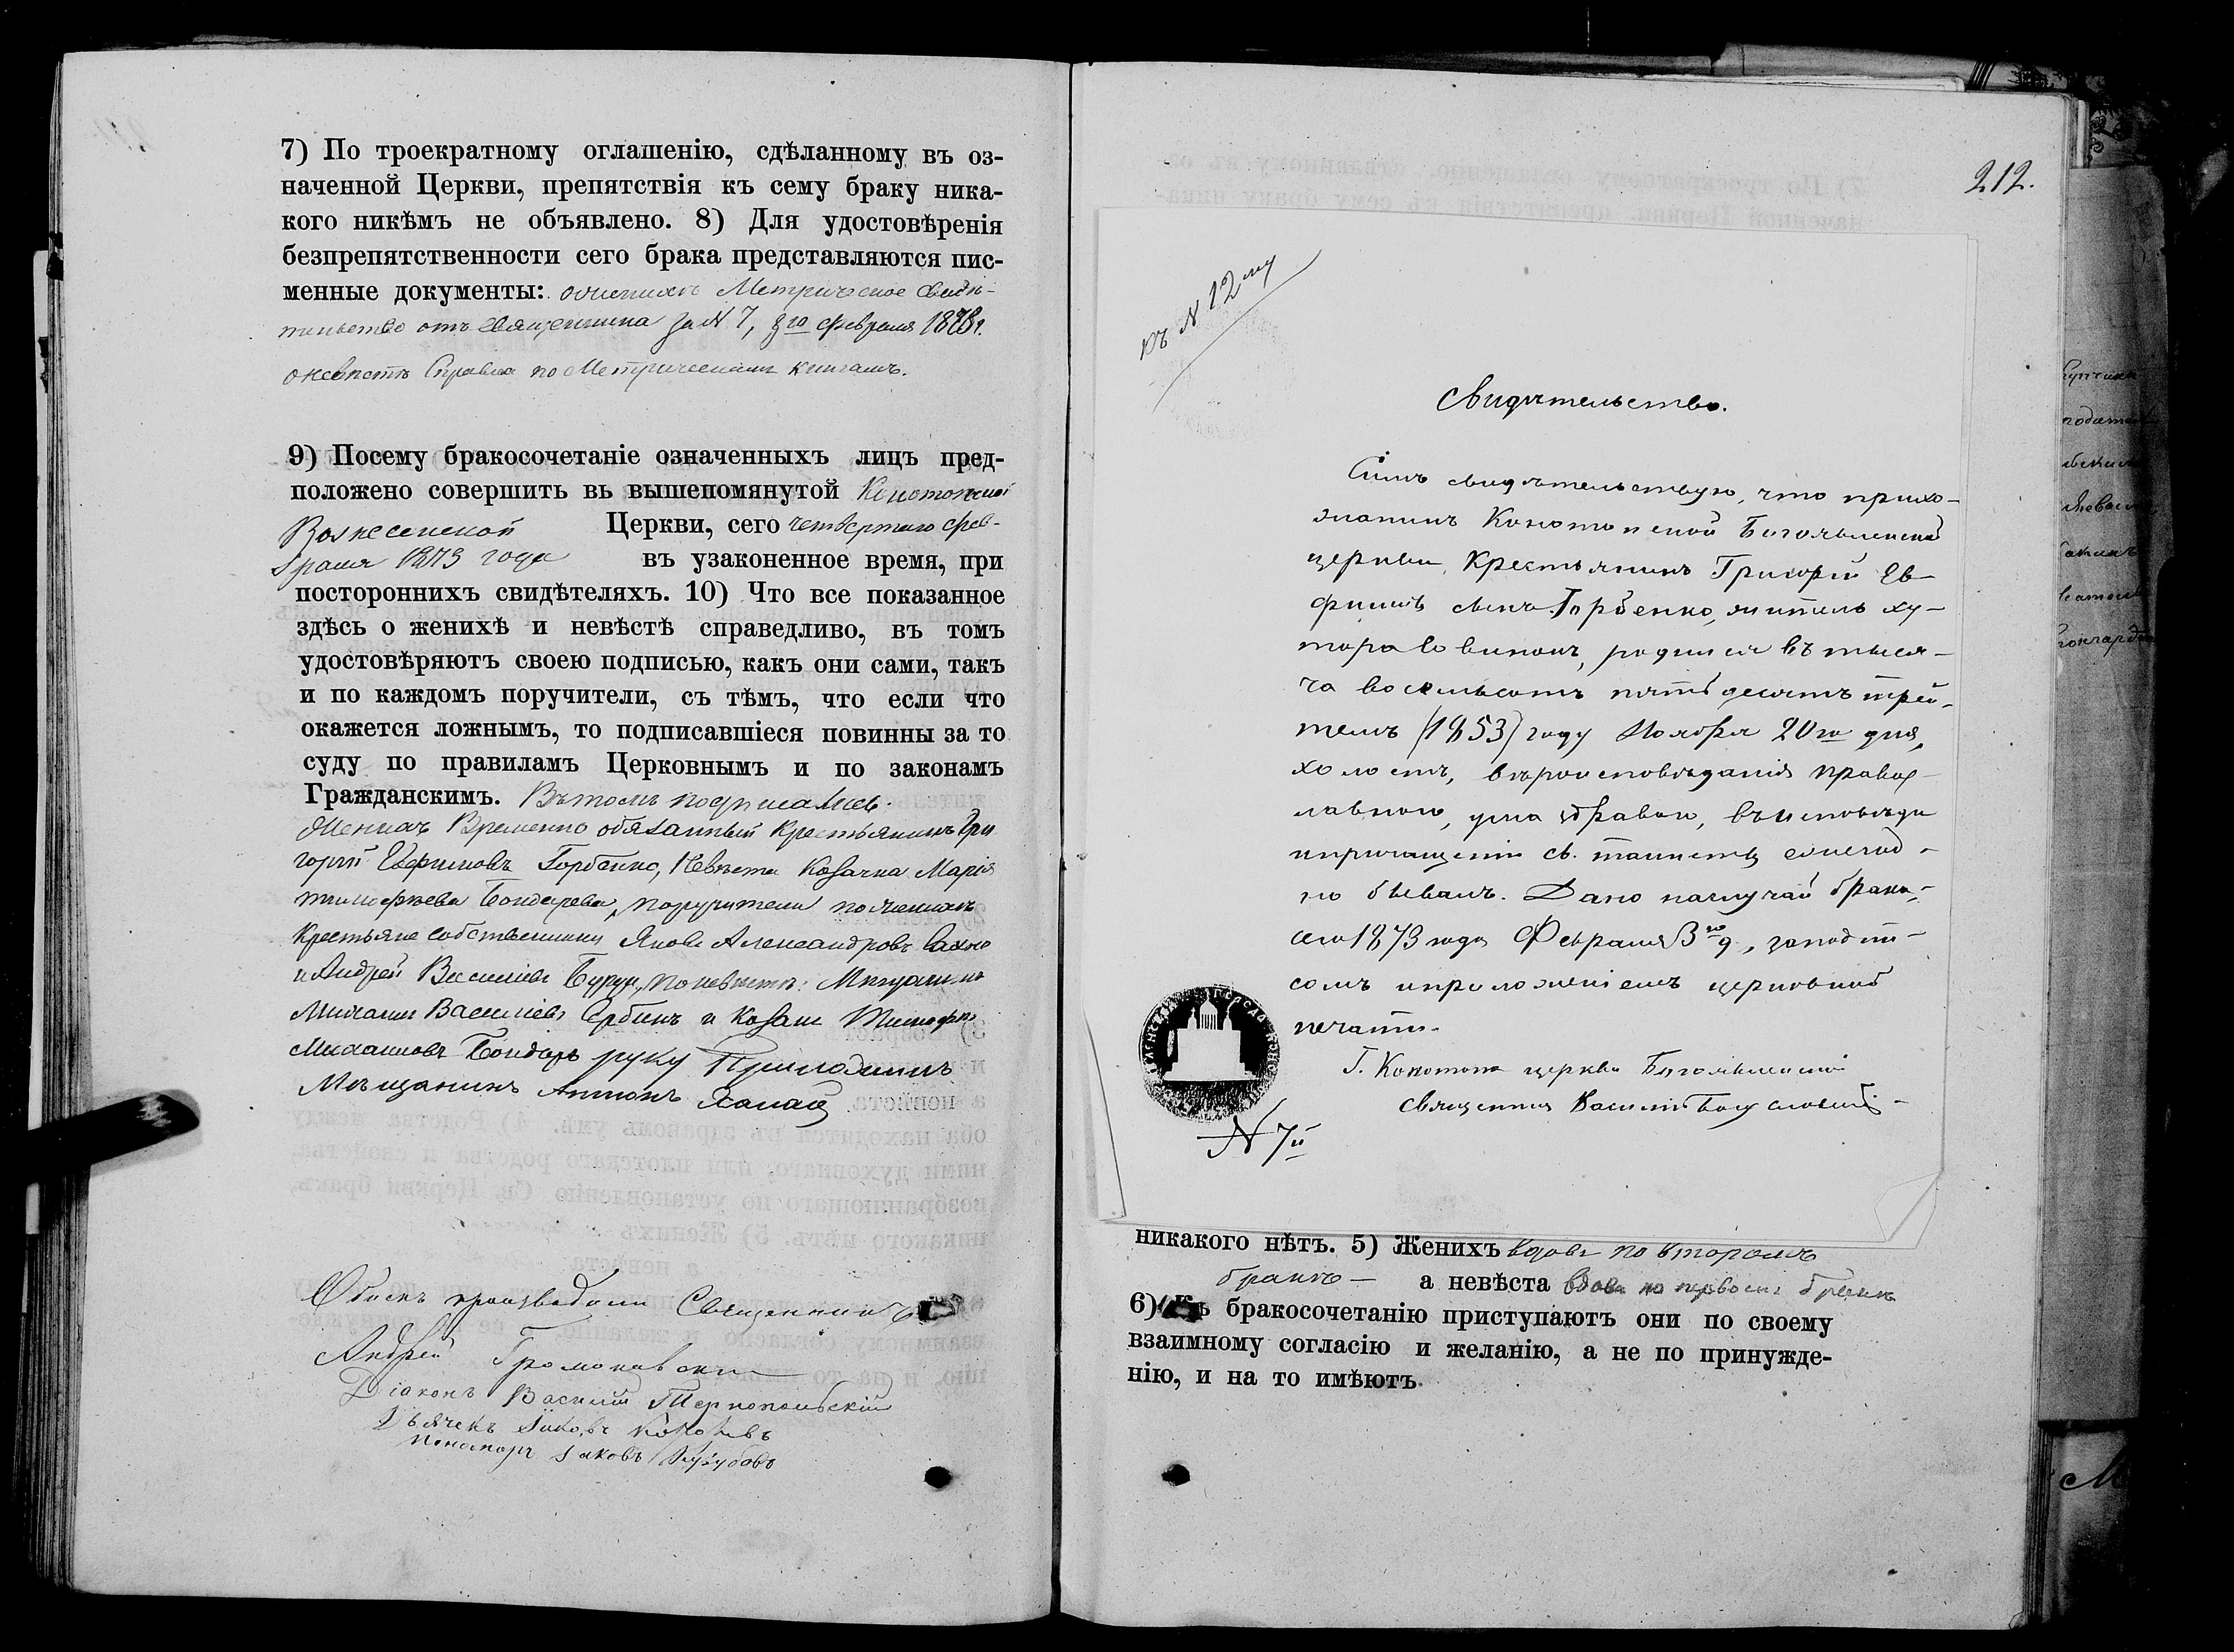 7) По троекратному оглашенію, сдѣланному въ оз-
наченной Церкви, препятствія къ сему браку ника-
кого никѣмъ не объявлено. 8) Для удостовѣренія
безпрепятственности сего брака представляются пис-
менные документы: о женихѣ Метрическое свидѣ-
тельство отъ священника за N 7, 3го февраля 1873 г.
о невѣстѣ Справка по Метрическимъ книгамъ.
9) Посему бракосочетаніе означенныхъ лицъ пред-
положено совершить въ вышепомянутой Конотопской
Вознесенской Церкви, сего четвертаго фев-
раля 1873 года въ узаконенное время, при
постороннихъ свидѣтеляхъ. 10) Что все показанное
здѣсь о женихѣ и невѣстѣ справедливо, въ томъ
удостовѣряютъ своею подписью, какъ они сами, такъ
и по каждомъ поручители, съ тѣмъ, что если что
окажется ложнымъ, то подписавшіеся повинны за то
суду по правиламъ Церковнымъ и по законамъ
Гражданскимъ. Въ томъ подписались.
Женихъ Временно обязанный Крестьянинъ Гри
горій Ефимовъ Горбенко, Невѣста Козачка Марія
Тимофѣева Бондарева, поручители по женихѣ
Крестьяне собственники Яковъ Александровъ Сахно
и Андрей Василіевъ, по невѣстѣ: Мѣщанинъ
Михаилъ Василіевъ Сербинъ и Козакъ Тимофѣй
Михаиловъ Бондарь руку Приложилъ
Мѣщанинъ Антонъ
Обыскъ производили Священникъ
Андрей Громоковскій
Діаконъ Василій Тернопольскій
Дьячекъ Яковъ
Пономарь Іаковъ
212.
къ N 12му
Свидѣтельство.
Симъ свидѣтельствую, что прихо-
жанинъ Конотопской Богоявленской
церкви, Крестьянинъ Григорій Ев-
фимія сынъ Горбенко, житель ху-
тора, родился въ тыся-
ча восемьсотъ пятьдесятъ треть-
емъ (1853) году Ноября 20го дня,
холостъ, вѣроисповѣданія право-
славнаго, ума здраваго, въ исповѣди
и причащеніи св. таинствъ ежегод-
но бываетъ. Дано на случай брака,
сего 1873 года Февраля 3го д., за подпи-
сомъ и приложеніемъ церковной
печати.
Г. Конотопа церкви Богоявленской
священникъ Василій Богословскій
N 7й
никакого нѣтъ. 5) Женихъ вдовъ по второмъ
бракѣ — а невѣста вдова по первомъ бракѣ
6) Къ бракосочетанію приступаютъ они по своему
взаимному согласію и желанію, а не по принужде-
нію, и на то имѣютъ